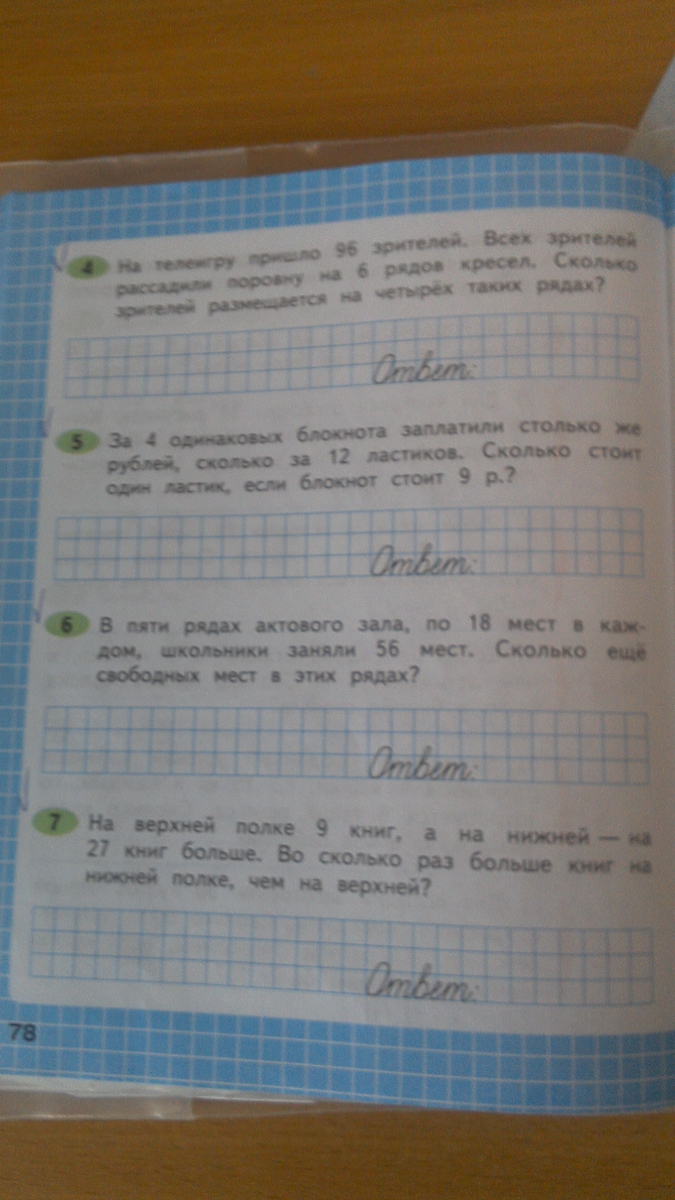 4 На телеигру пришло 96 зрителей. Всех зрителей
рассадили поровну на 6 рядов кресел. Сколько
зрителей размещается на четырёх таких рядах?
Ответ:
5 За 4 одинаковых блокнота заплатили столько же
рублей, сколько за 12 ластиков. Сколько стоит
один ластик, если блокнот стоит 9 р.?
Ответ:
6 В пяти рядах актового зала, по 18 мест в каж-
дом, школьники заняли 56 мест. Сколько ещё
свободных мест в этих рядах?
Ответ:
7 На верхней полке 9 книг, а на нижней — на
27 книг больше. Во сколько раз больше книг на
нижней полке, чем на верхней?
Ответ:
78